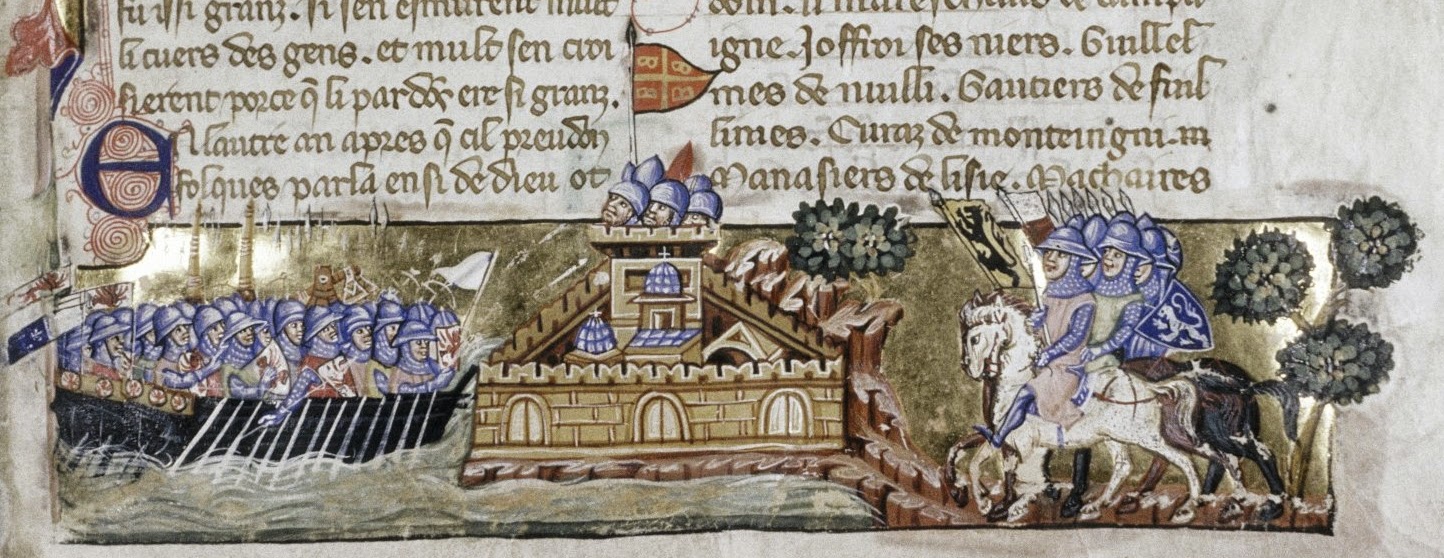 fu issi granz. si sen esmurent mult
li cuers des gens. et mult sen croi
sierent porce q̃ li pardõs ere si granz.
En lautre an apres q̃ cil preudon
folques parla ensi de dieu ot
igne. Joffroi ses niers. Guillel
mes de nuilli. Gautiers de fuil
lines. Euraz de monteingni.
Manasiers de lisle. Machaires